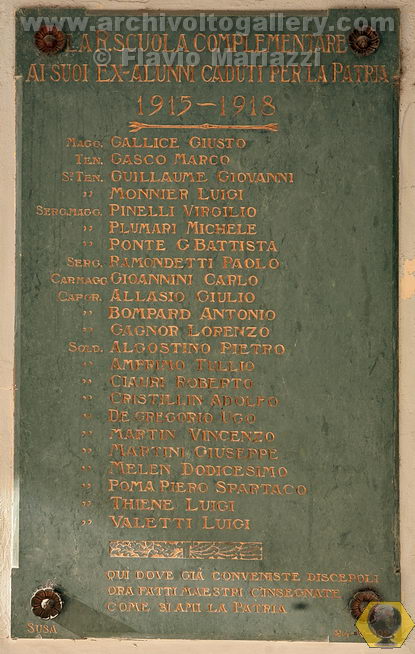 www.archivoltogallery.com
LA R. SCUOLA COMPLEMENTARE
© Flavio Mariazzi
AI SUOI EX-ALUNNI CADUTI PER LA PATRIA
1915-1918
MAGG. GALLICE GIUSTO
TEN. GASCO MARCO
S. TEN. GUILLAUME GIOVANNI
" MONNIER LUIGI
SERG. MAGG. PINELLI VIRGILIO
" PLUMARI MICHELE
" PONTE G. BATTISTA
SERG. RAMONDETTI PAOLO
CAP. MAGG. GIOANNINI CARLO
CAPOR. ALLASIO GIULIO
" BOMPARD ANTONIO
" GAGNOR LORENZO
SOLD. ALGOSTINO PIETRO
" AMPRIMO TULLIO
" CIAURI ROBERTO
" ADOLFO
" DE GREGORIO UGO
" MARTIN VINCENZO
" MARTINI GIUSEPPE
" MELEN DODICESIMO
" POMA PIERO SPARTACO
" THIENE LUIGI
" VALETTI LUIGI
QUI DOVE GIÀ CONVENISTE DISCEPOLI
ORA FATTI MAESTRI C'INSEGNATE
COME SI AMI LA PATRIA
SUSA